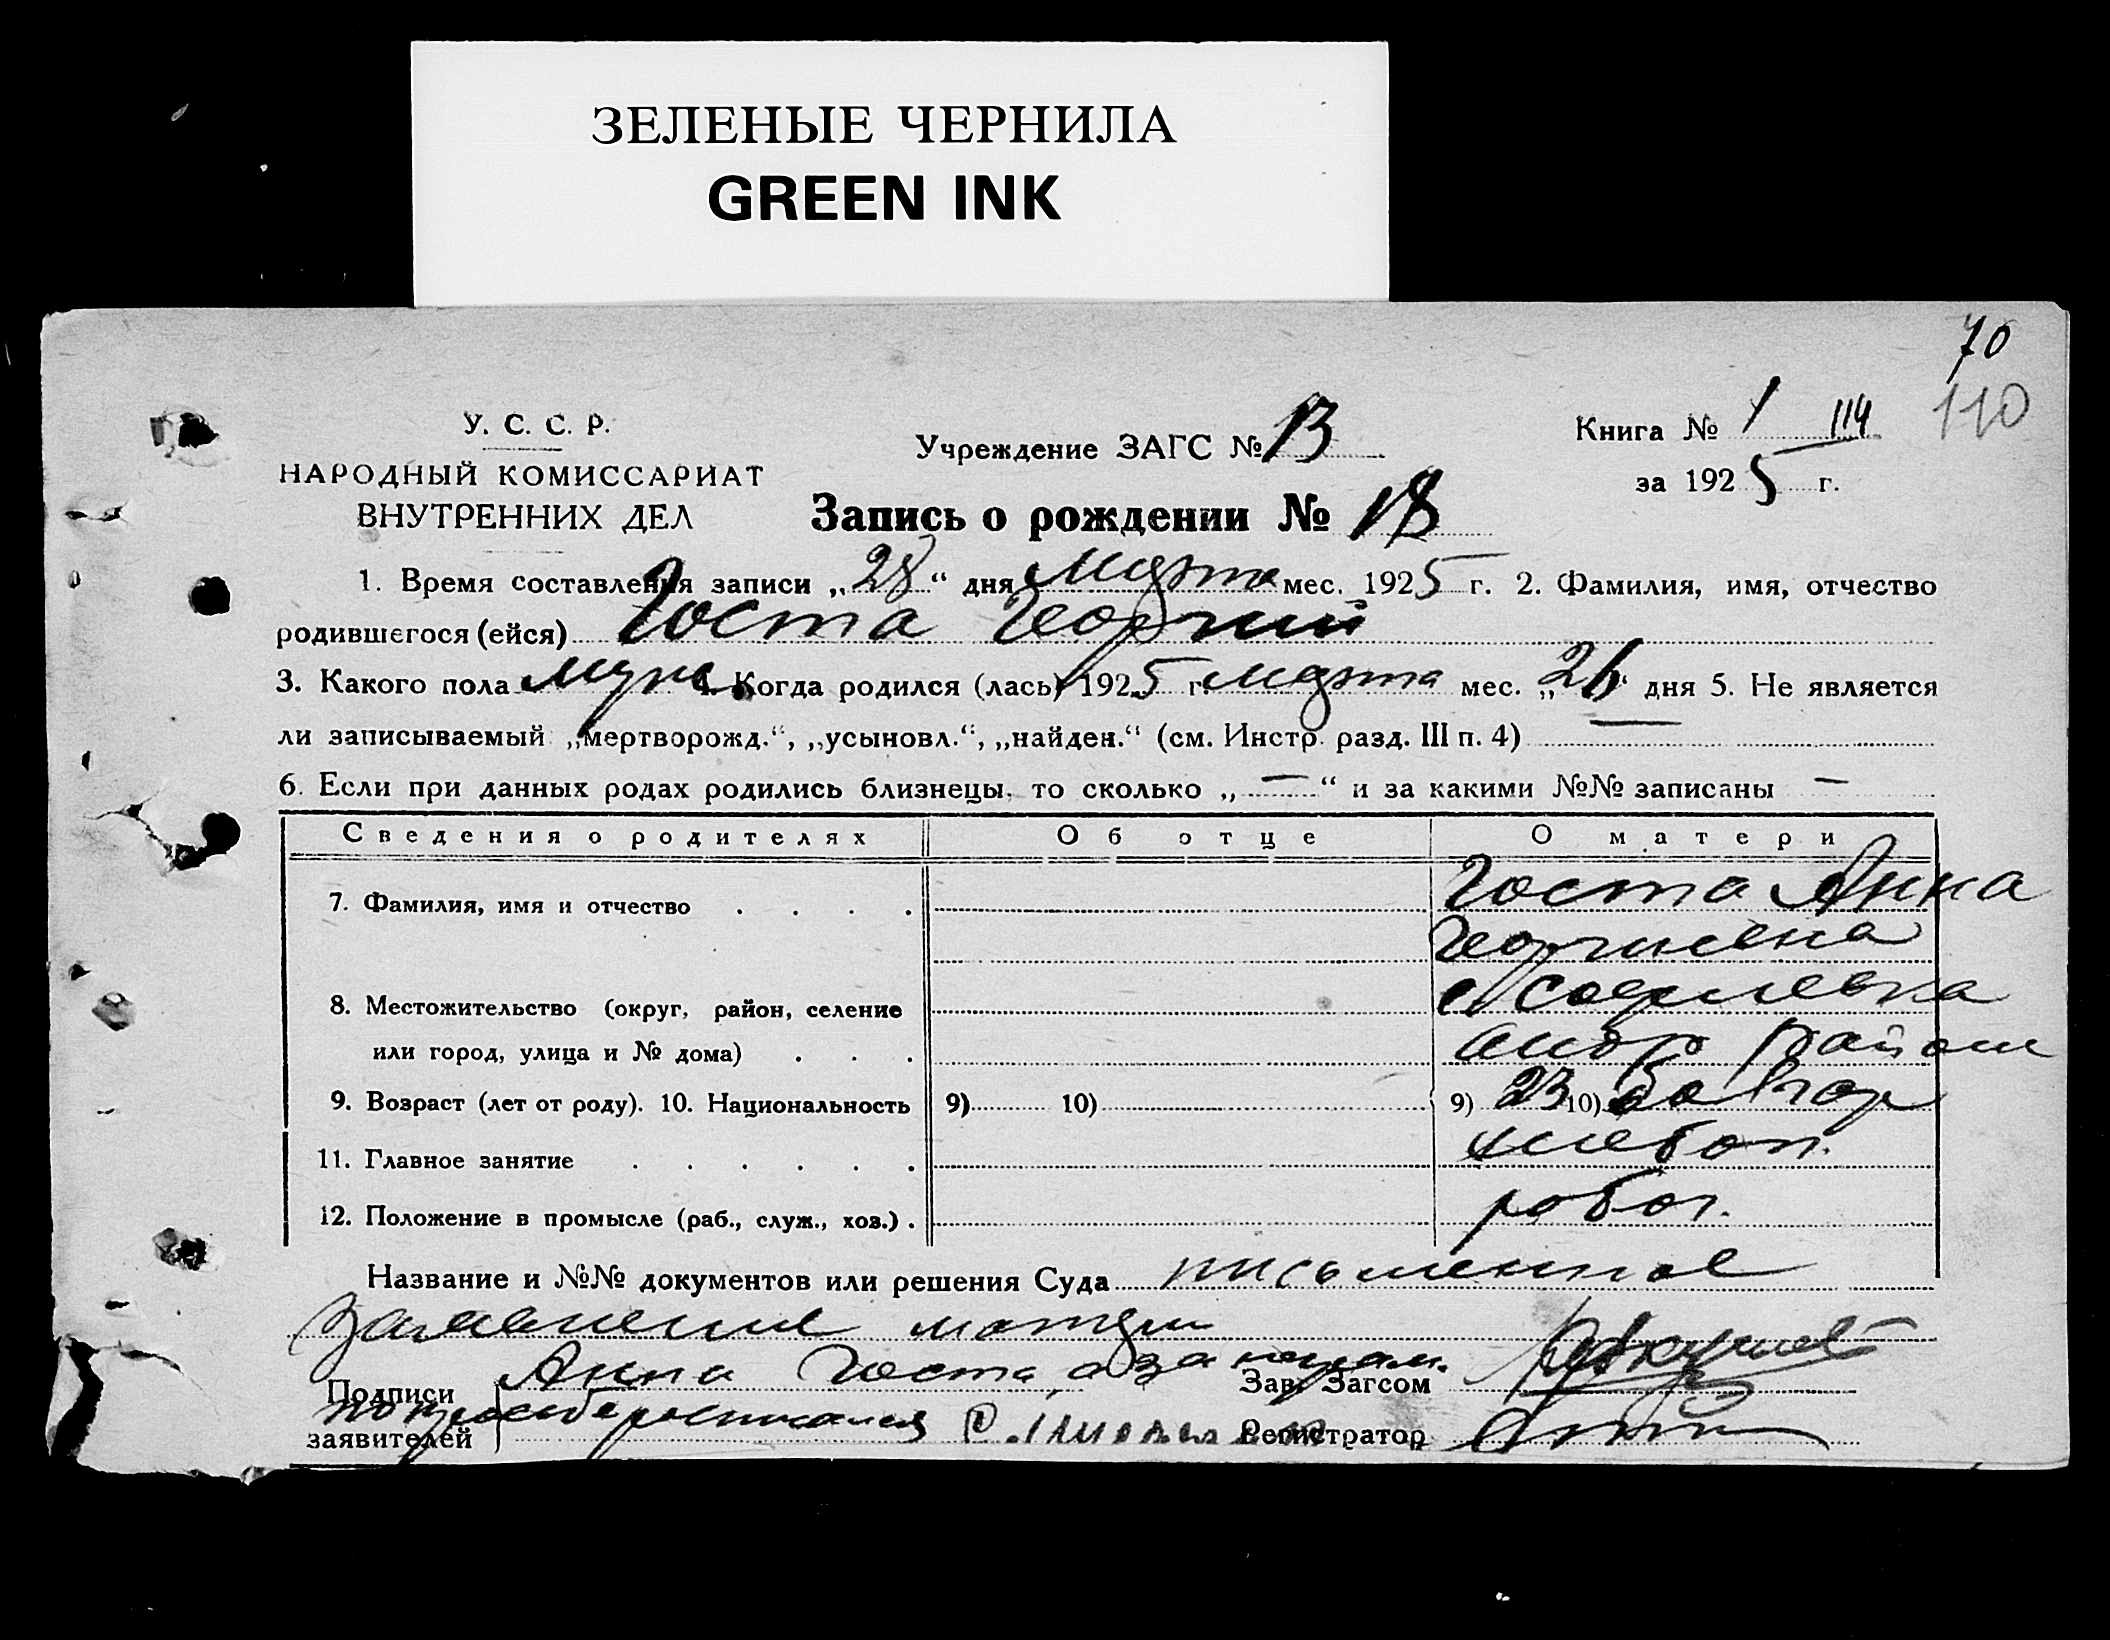 ЗЕЛЕНЫЕ ЧЕРНИЛА
GREEN INK
70
110
У. С. С. Р.
НАРОДНЫЙ КОМИССАРИАТ
ВНУТРЕННИХ ДЕЛ
Учреждение ЗАГС № 13
Книга № 1 114
за 1925 г.
Запись о рождении № 18
1. Время составления записи „28“ дня Марта мес. 1925 г. 2. Фамилия, имя, отчество
родившегося (ейся) Госта Георгий
3. Какого пола муж. 4. Когда родился (лась) 1925 г. Марта мес. „26“ дня 5. Не является
ли записываемый „мертворожд.“, „усыновл.“, „найден.“ (см. Инстр. разд. III п. 4) —
6. Если при данных родах родились близнецы, то сколько „—“ и за какими №№ записаны —
Сведения о родителях Об отце О матери
7. Фамилия, имя и отчество . . . . Госта Анна
Георгиевна
8. Местожительство (округ, район, селение
или город, улица и № дома) . . . район
9. Возраст (лет от роду). 10. Национальность 9) 10) 9) 23 10)
11. Главное занятие . . . . . . хлебоп.
12. Положение в промысле (раб., служ., хоз.) .
Название и №№ документов или решения Суда письменное
заявление матери
Подписи Анна Госта а за
заявителей
Зав. Загсом
Регистратор